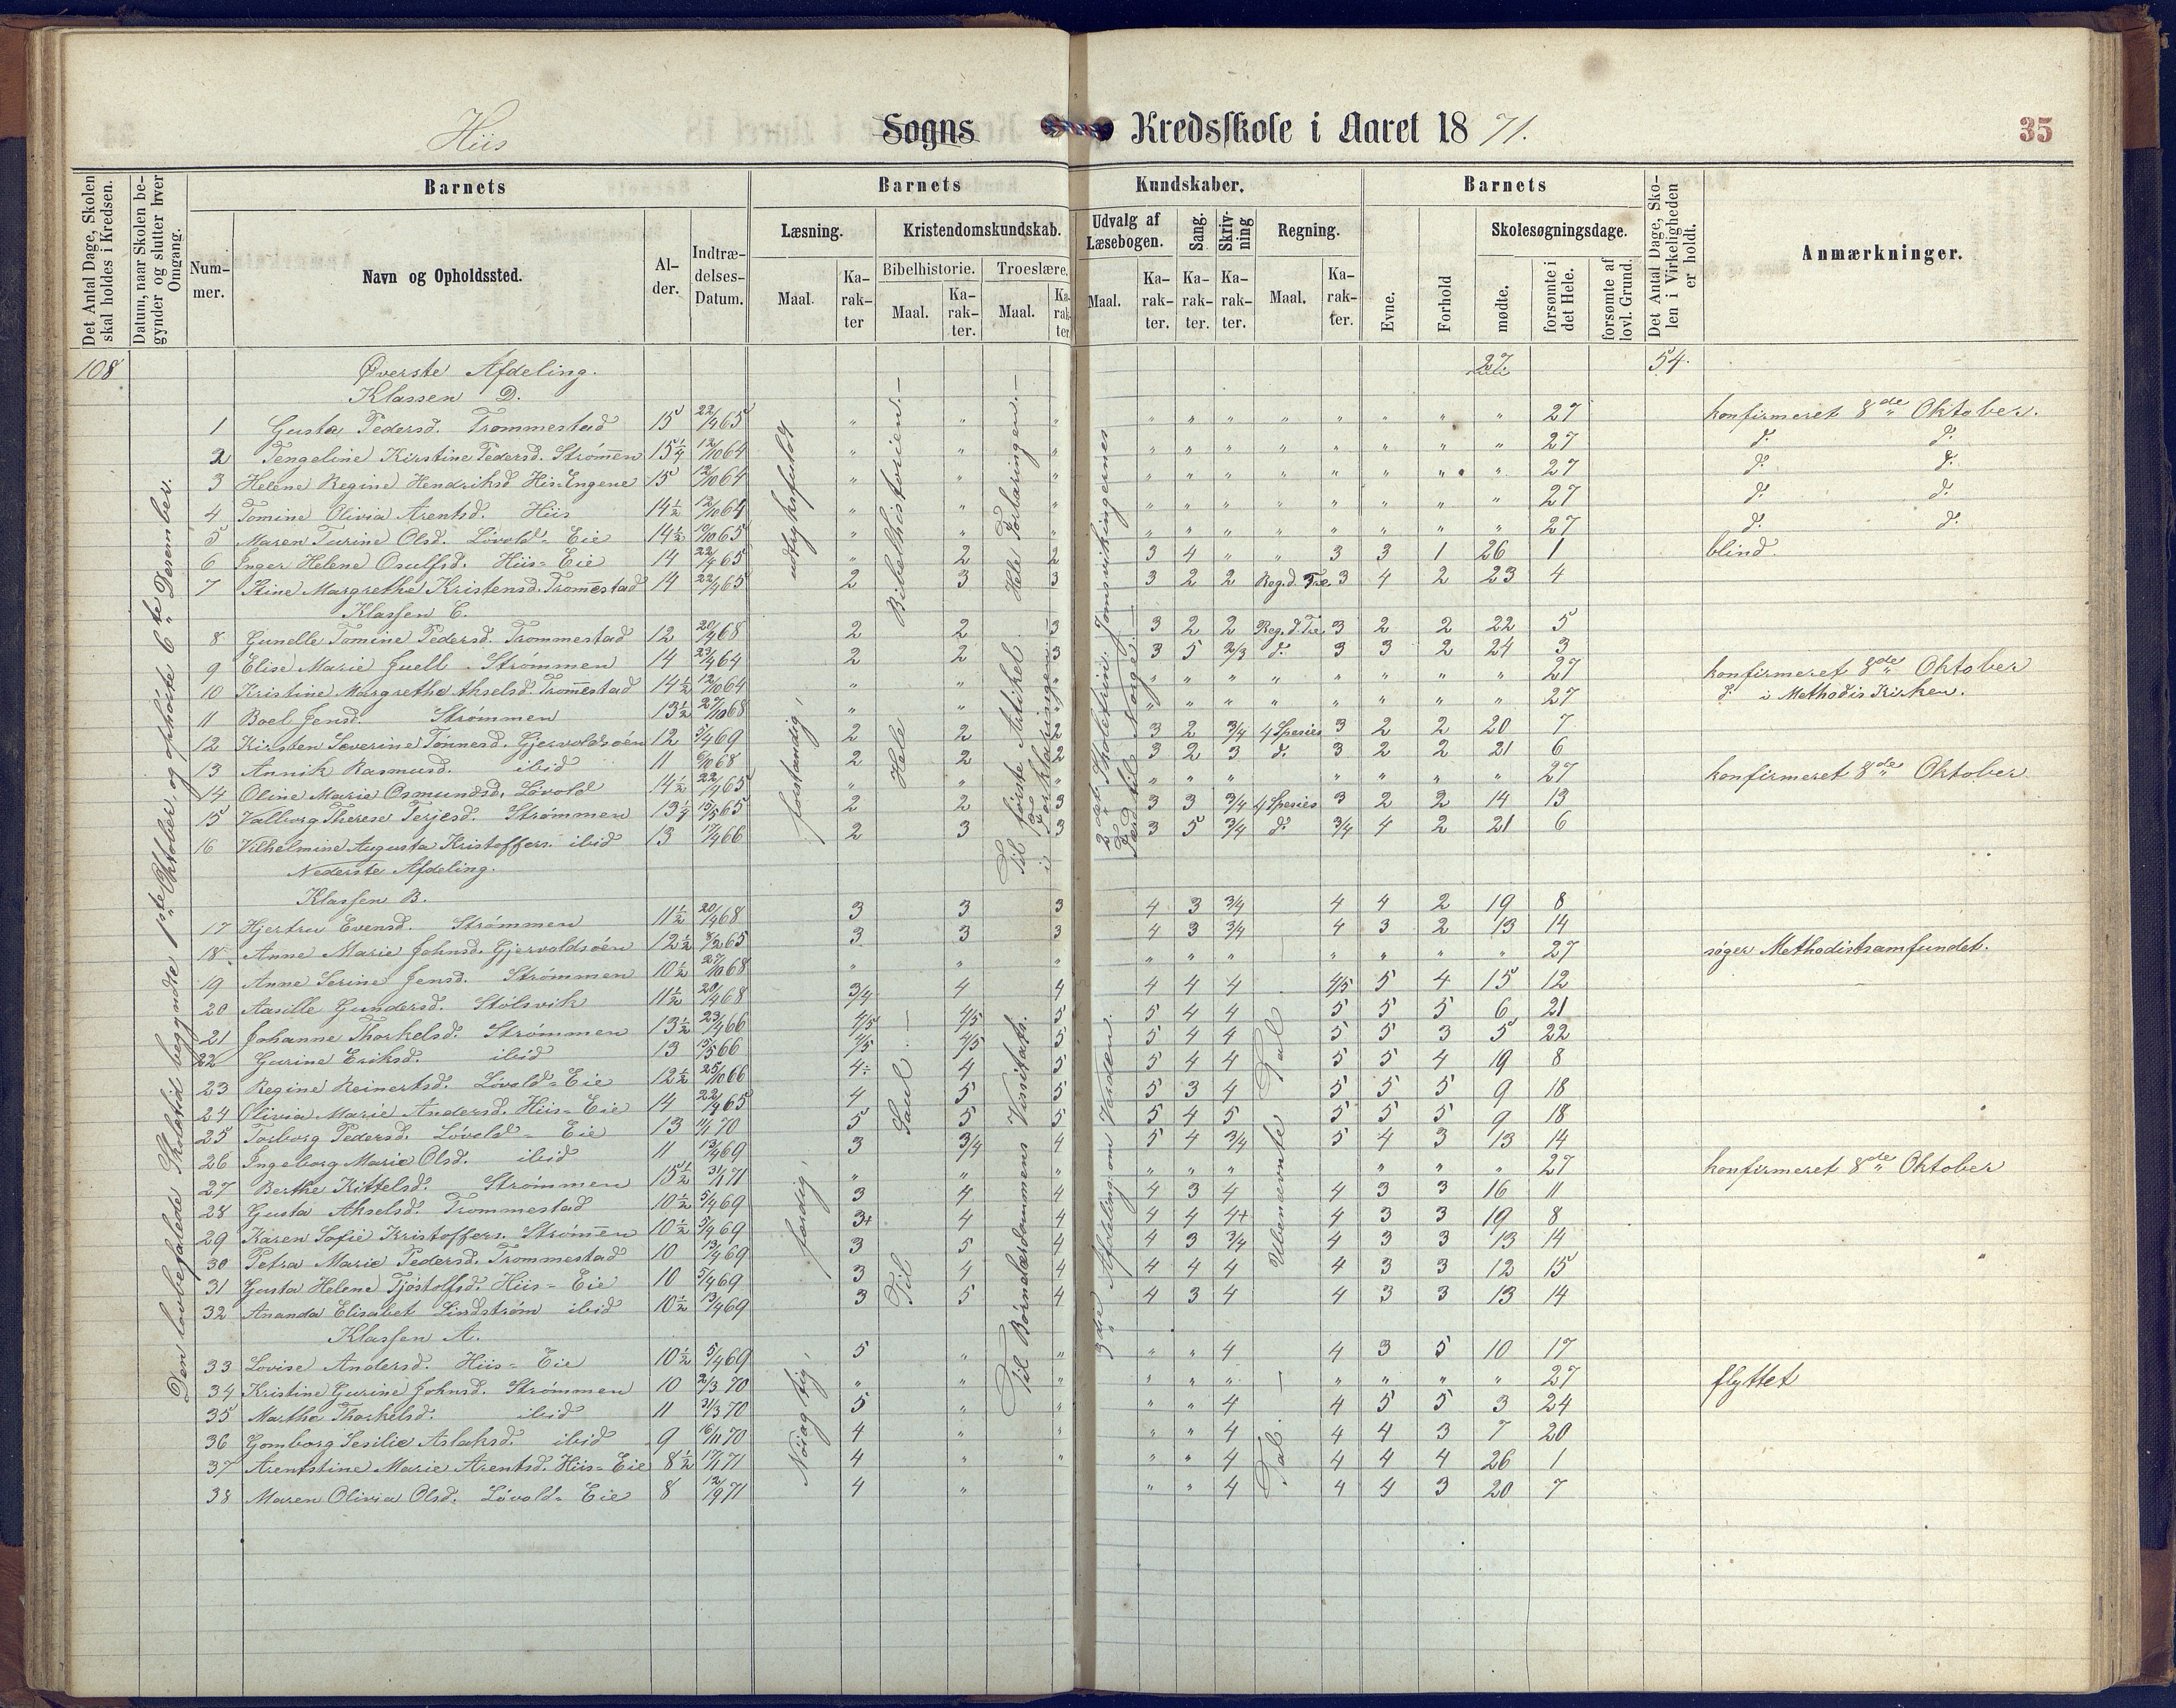 Hiis Sogns Kredsskole i Aaret 1871. 35
Det Antal Dage, Skolen skal holdes i Kredsen.
Datum, naar Skolen begynder og slutter hver Omgang.
Barnets
Nummer.
Navn og Opholdssted.
Alder.
Indtrædelses-Datum.
Barnets Kundskaber.
Læsning.
Maal.
Karakter
Kristendomskundskab.
Bibelhistorie.
Maal.
Karakter.
Troeslære.
Maal.
Karakter
Udvalg af Læsebogen.
Maal.
Karakter.
Sang.
Karakter.
Skrivning
Karakter.
Regning.
Maal.
Karakter.
Barnets
Evne.
Forhold
Skolesøgningsdage.
mødte.
forsømte i det Hele.
forsømte af lovl. Grund.
Det Antal Dage, Skolen i Virkeligheden er holdt.
Anmærkninger.
108 Øverste Afdeling. 27 54.
Klassen D.
1 Gusta Pedersd. Trommestad 15 22/4 65 " " " " " " " " " " " 27 konfirmeret 8de Oktober.
2 Tengeline Kirstine Pedersd. Strømen 15 1/4 12/10 64 " " " " " " " " " " " 27 d. d.
3 Helene Regine Hendriksd His-Engene 15 12/10 64 " " " " " " " " " " " 27 d. d.
4 Tomine Olivia Arentsd. Hiis 14 1/2 12/10 64 " " " " " " " " " " " 27 d. d.
5 Maren Turine Olsd. Lövold-Eie 14 1/2 10/10 65 " " " " " " " " " " " 27 d. d.
6 Inger Helene Osulfsd. Hiis-Eie 14 22/4 65 " 2 2 3 4 " " 3 3 1 26 1 blind.
7 Stine Margrethe Kristensd. Tromestad 14 22/4 65 2 3 3 3 2 2 Reg. d. Tre. 3 4 2 23 4
Klassen C.
8 Gunelle Tomine Pedersd. Trommestad 12 20/4 68 2 2 3 3 2 2 Reg. d. Tre. 3 2 2 22 5
9 Elise Marie Juell Strömmen 14 23/4 64 2 2 3 3 5 2/3 d. 3 3 2 24 3
10 Kristine Margrethe Akselsd. Tromestad 14 1/2 12/10 64 " " " " " " " " " " " 27 konfirmeret 8de Oktober
11 Boel Jensd. Strömmen 13 1/2 27/10 68 " " " " " " " " " " 27 d. i Methodis Kirken.
12 Kirsten Severine Tönnesd. Gjervoldsöen 12 5/4 69 2 2 2 3 2 3/4 4 Species 3 2 2 20 7
13 Annik Rasmusd. ibid 11 6/10 68 2 2 2 3 2 3 d. 3 2 2 21 6
14 Oline Marie Osmundsd. Lövold 14 1/2 22/4 65 " " " " " " " " " 27 konfirmeret 8de Oktober
15 Valborg Therese Terjesd. Strömmen 13 1/4 15/5 65 2 2 3 3 3 3/4 4 Species 3 2 2 14 13
16 Vilhelmine Augusta Kristoffers. ibid 13 17/4 66 2 3 3 3 5 3/4 d. 3/4 4 2 21 6
Nederste Afdeling.
Klassen B.
17 Hjertru Evensd. Strömmen 11 1/2 20/4 68 3 3 3 4 3 3/4 4 4 2 19 8
18 Anne Marie Johnsd. Gjervoldsöen 12 1/2 8/2 65 3 3 3 4 3 3/4 4 3 2 13 14
19 Anne Serine Jensd. Strömmen 10 1/2 27/10 68 " " " " " " " " " " 27 söger Methodistsamfundet.
20 Aasille Gundersd. Stölsvik 11 1/2 20/4 68 3/4 4 4 4 4 4 4/5 5 4 15 12
21 Johanne Thorkelsd. Strömmen 13 1/2 23/4 66 4/5 4/5 5 5 4 4 5 5 5 6 21
22 Gurine Eriksd. ibid 13 15/5 66 4/5 4/5 5 5 4 4 5 5 3 5 22
23 Regine Reinertsd. Lovold-Eie 12 1/2 25/10 66 4÷ 4 5 5 4 4 5 5 4 19 8
24 Olivia Marie Andersd. Hiis-Eie 14 22/4 65 4 5 5 5 3 4 5 5 5 9 18
25 Torborg Pedersd. Lövold-Eie 13 11/1 70 5 5 5 5 4 5 5 5 5 9 18
26 Ingeborg Marie Olsd. ibid 11 13/4 69 3 3/4 4 5 4 3/4 5 4 3 13 14
27 Berthe Kittelsd. Strömmen 15 1/2 31/1 71 " " " " " " " " " 27 konfirmeret 8de Oktober
28 Gusta Akselsd. Trommestad 10 1/2 5/4 69 3 4 4 4 3 4 4 3 3 16 11
29 Karen Sofie Kristoffers. Strömen 10 1/2 5/4 69 3+ 4 4 4 4 4+ 4 3 3 19 8
30 Petra Marie Pedersd. Trommestad 10 13/4 69 3 5 4 4 3 3/4 4 3 3 13 14
31 Gusta Helene Tjöstolfsd. Hiis-Eie 10 5/4 69 3 4 4 4 4 4 4 3 3 12 15
32 Ananda Elisabet Lindström ibid 10 1/2 13/4 69 3 5 4 4 3 4 4 3 3 13 14
Klassen A.
33 Lovise Andersd. Hiis-Eie 10 1/2 5/4 69 5 " " " " 4 4 3 5 10 17
34 Kristine Gurine Johnsd. Strömmen 10 2/3 70 " " " " " " " " " " 27 flyttet
35 Marthe Thorkelsd. ibid 11 31/3 70 5 " " " " 4 4 5 5 3 24
36 Gomborg Sesilie Aslaksd. ibid 9 16/11 70 4 " " " " 4 4 4 3 7 20
37 Arentstine Marie Arentsd. Hiis-Eie 8 1/2 17/1 71 4 " " " " 4 4 4 4 26 1
38 Maren Olivia Olsd. Lövold-Eie 8 12/9 71 4 " " " 4 4 4 3 20 7
Den lovbefalede Skoletid begyndte 1ste Oktober, og ophörte 6te Desember.
Nöiagtig, færdig, forstandig, udtryksfuldt
Til Saul.—
Hele Bibelhistorien.—
Til Börnelærdommens Vissitats.
Til förste Artikel i Forklaringen.
Hele Forklaringen.—
3die Afdeling: om Verden.
2det Skoletrin: Jomsvikingernes Færd til Norge.—
Tal.—
Ubenævnte Tal